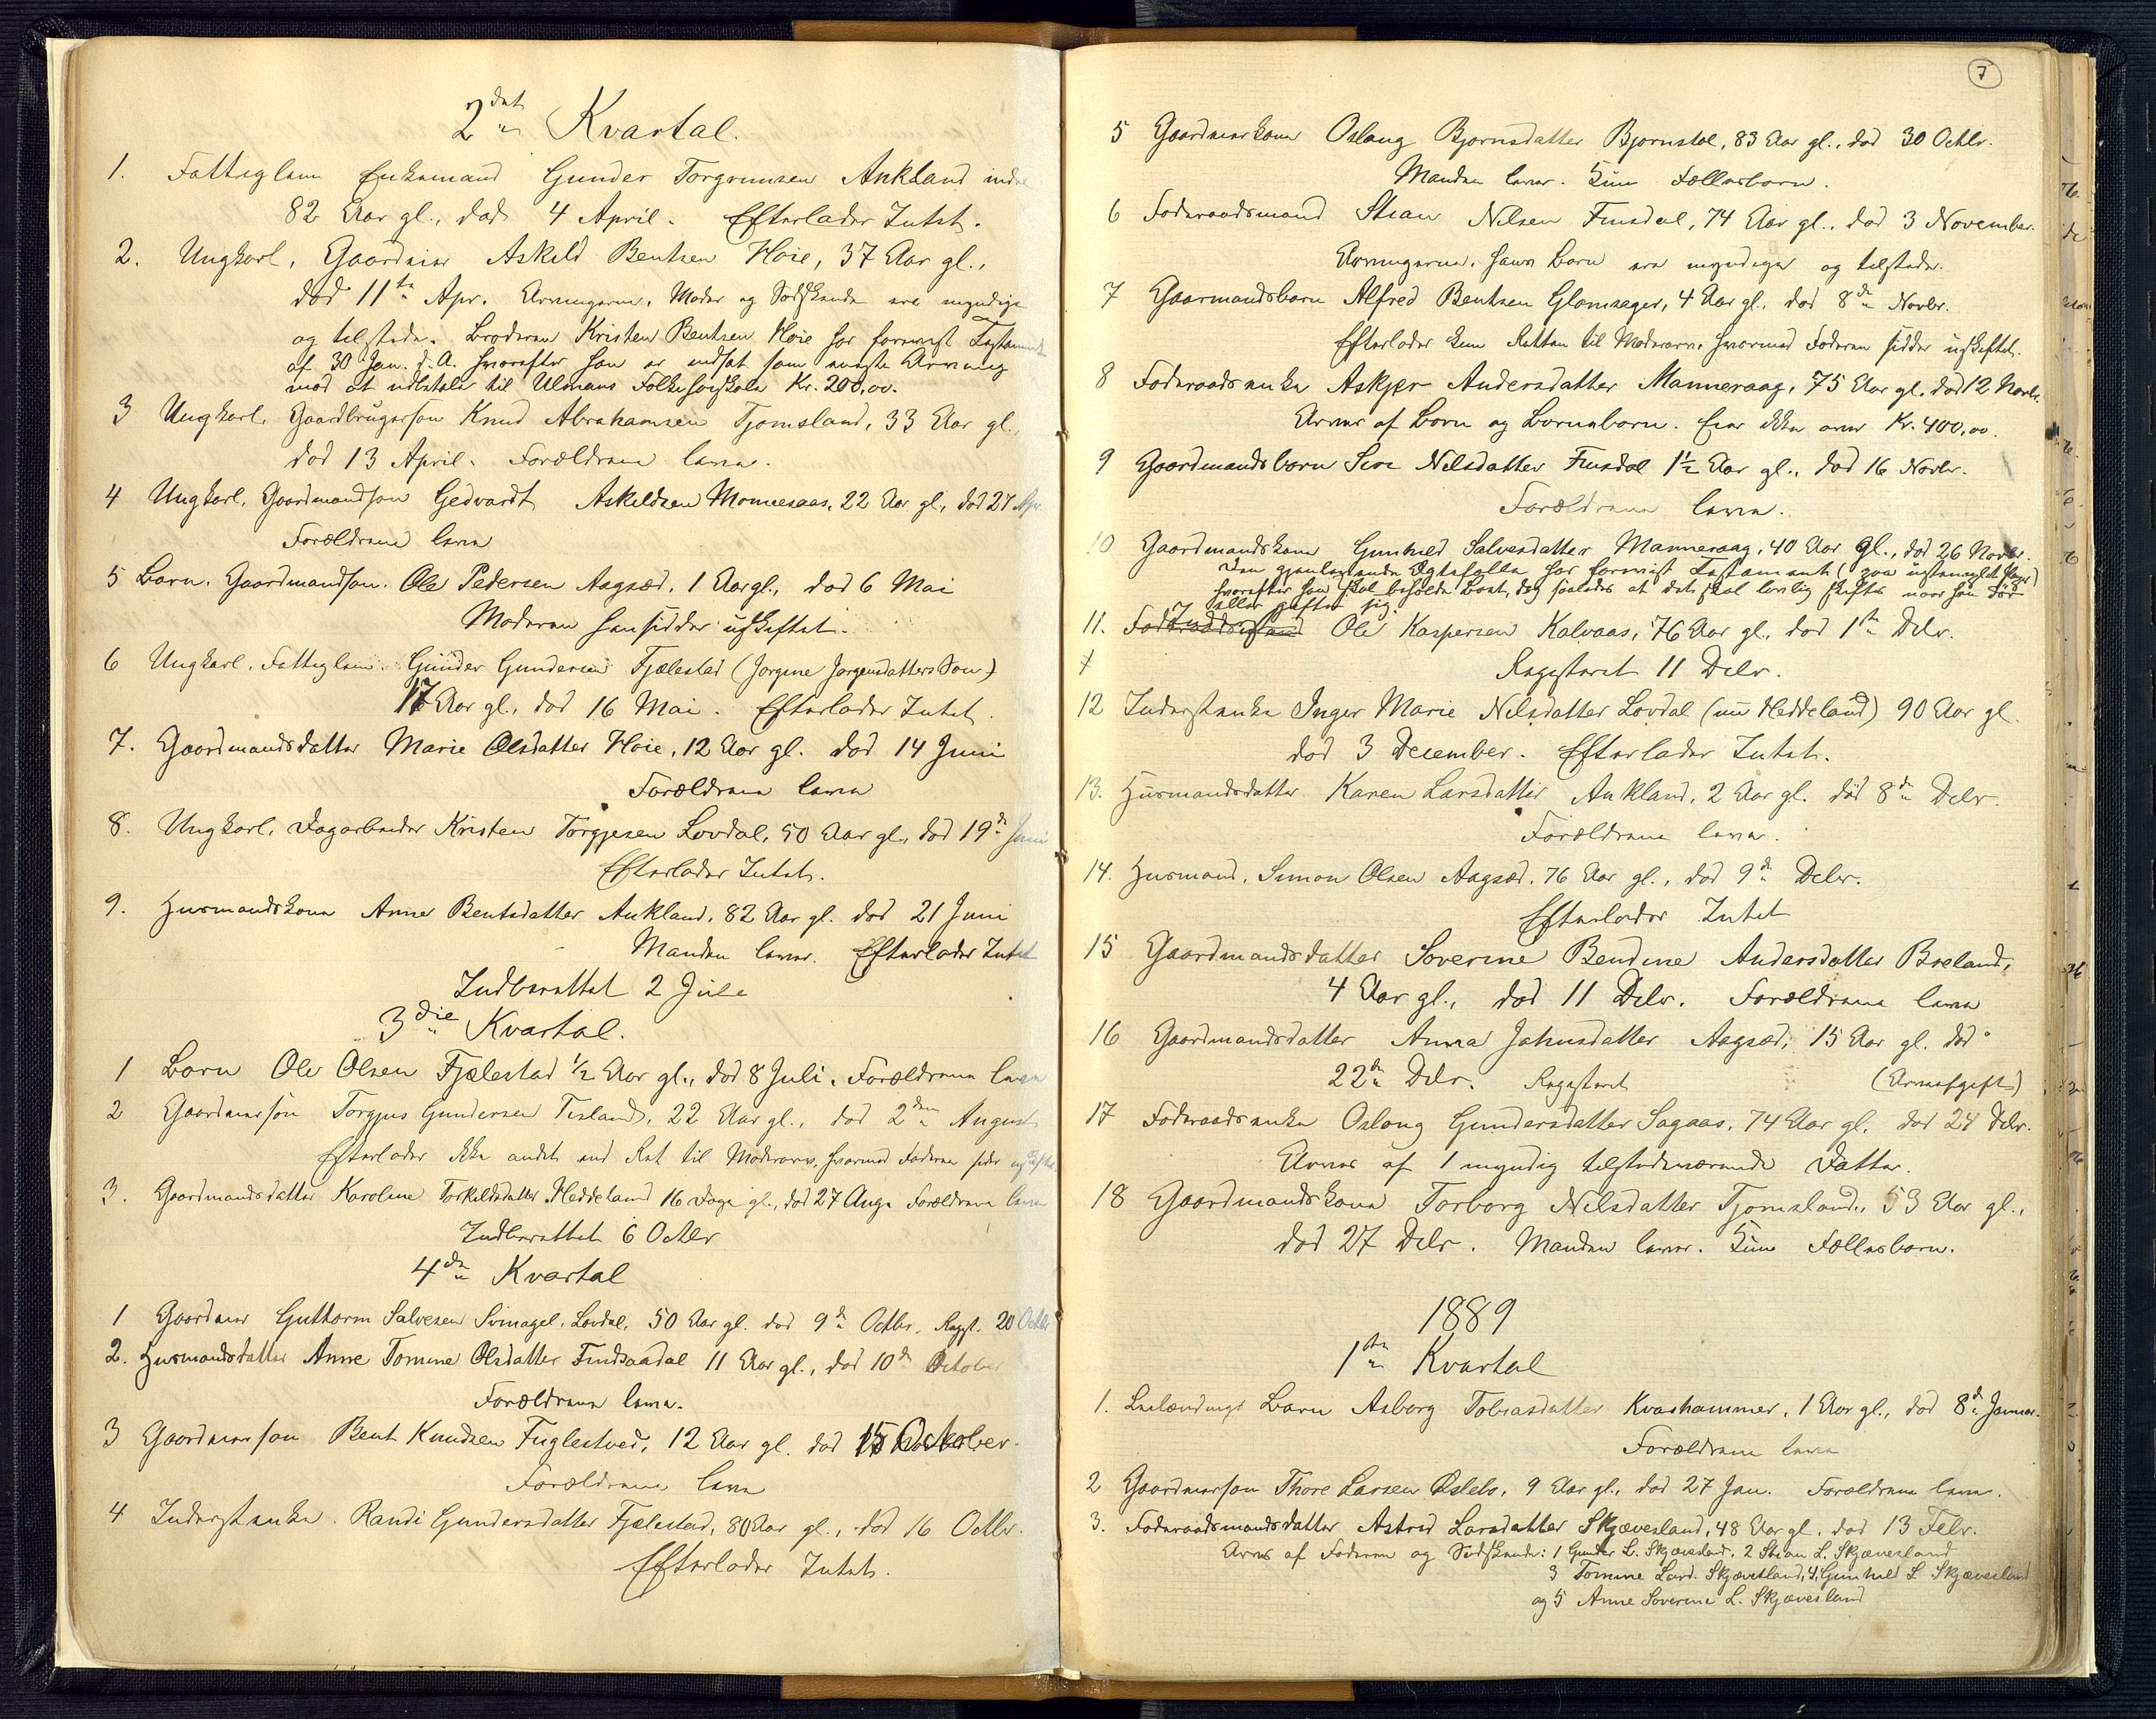 2det Kvartal.
1. Fattiglem Enkemand Gunder Torgrimsen Aukland indre
82 Aar gl., død 4 April. Efterlader Intet.
2. Ungkarl, Gaardeier Askild Bentsen Høie, 37 Aar gl.,
død 11te Apr. Arvingerne, Moder og Sødskende ere myndige
og tilstede. Broderen Kristen Bentsen Høie har forevist Testament
af 30 Jan. d.A. hvorefter han er indsat som eneste Arving
mod at udbetale til Ulmans Folkehøiskole Kr. 200,00.
3 Ungkarl, Gaardbrugersøn Knud Abrahamsen Tjomsland, 33 Aar gl.,
død 13 April. Forældrene leve.
4 Ungkarl, Gaardmandsøn Gedvardt Askildsen Monnesaas, 22 Aar gl., død 27 Apr.
Forældrene leve
5 Barn. Gaardmandsøn. Ole Pedersen Aagsæd, 1 Aar gl., død 6 Mai
Moderen hensidder uskiftet.
6 Ungkarl, Fattiglem. Gunder Gundersen Fjælestad (Jorgine Jorgensdatters Søn)
17 Aar gl., død 16 Mai. Efterlader Intet.
7. Gaardmandsdatter Marie Olsdatter Høie, 12 Aar gl. død 14 Juni
Forældrene leve
8. Ungkarl, Dagarbeider Kristen Torgjesen Lovdal, 50 Aar gl., død 19de Juni
Efterlader Intet.
9. Husmandskone Anne Bentsdatter Aukland, 82 Aar gl. død 21 Juni
Manden lever. Efterlader Intet
Indberettet 2 Juli
3die Kvartal.
1 Barn Ole Olsen Fjælestad ½ Aar gl., død 8 Juli. Forældrene leve
2 Gaardeiersøn Torgjus Gundersen Tisland, 22 Aar gl., død 2den August
Efterlader ikke andet end Ret til Mødrearv, hvormed Faderen sider uskiftet
3. Gaardmandsdatter Karoline Torkeldsdatter Heddeland 16 Dage gl., død 27 Aug. Forældrene leve
Indberettet 6 Octbr
4de Kvartal
1 Gaardeier Guttorm Salvesen Svinagel, Lovdal, 50 Aar gl. død 9de Octbr. Regst. 20 Octbr
2. Husmandsdatter Anne Tomine Olsdatter Findsaadal 11 Aar gl., død 10de October
Forældrene leve.
3 Gaardeiersøn Bent Knudsen Fuglestved, 12 Aar gl. død 15 October.
Forældrene leve
4 Inderstenke. Randi Gundersdatter Fjælestad, 80 Aar gl., død 16 Octbr.
Efterlader Intet.
7
5 Gaardeierkone Oslaug Bjornsdatter Bjornstøl, 83 Aar gl., død 30 Octbr.
Manden lever. Kun Fællesbørn.
6 Føderaadsmand Stian Nilsen Finsdal, 74 Aar gl., død 3 November.
Arvingerne, hans Børn ere myndige og tilstede.
7 Gaarmandsbarn Alfred Bentsen Glomsager, 4 Aar gl. død 8de Novbr.
Efterlader kun Retten til Mødrearv, hvormed Faderen sidder uskiftet.
8 Føderaadsenke Askjer Andersdatter Manneraag, 75 Aar gl. død 12 Novbr.
Arves af Børn og Børnebørn. Eier ikke over Kr. 400,00.
9 Gaardmandsbarn Sire Nilsdatter Finsdal 1½ Aar gl., død 16 Novbr.
Forældrene leve.
10 Gaardmandskone Gunhild Salvesdatter Manneraag, 40 Aar gl., død 26 Novbr.
Den gjenlevende Ægtefælle har forevist Testament (paa ustemplet Papir)
hvorefter han skal beholde Boet, dog saaledes at det skal lovlig skiftes naar han dør
eller gifter sig.
11. Ole Kaspersen Kalvaas, 76 Aar gl. død 1ste Dcbr.
Registeret 11 Dcbr.
12 Inderstenke Inger Marie Nilsdatter Lovdal (nu Heddeland) 90 Aar gl.
død 3 December. Efterlader Intet.
13. Husmandsdatter Karen Larsdatter Aukland, 2 Aar gl. død 8de Dcbr.
Forældrene leve.
14. Husmand, Simon Olsen Aagsæd, 76 Aar gl., død 9de Dcbr.
Efterlader Intet
15 Gaardmandsdatter Soverine Bendine Andersdatter Breland,
4 Aar gl., død 11 Dcbr. Forældrene leve
16 Gaardmandsdatter Anna Jahnsdatter Aagsæd, 15 Aar gl. død
22de Dcbr. Registeret (Arveafgift)
17 Føderaadsenke Oslaug Gundersdatter Sagaas, 74 Aar gl. død 24 Dcbr.
Arves af 1 myndig tilstedeværende Datter.
18 Gaardmandskone Torborg Nilsdatter Tjomsland, 53 Aar gl.,
død 27 Dcbr. Manden lever. Kun Fællesbørn.
1889
1ste Kvartal
1. Leilændings Barn Asborg Tobiasdatter Kvashammer, 1 Aar gl., død 8de Januar.
Forældrene leve
2 Gaardeiersøn Thore Larsen Øslebø, 9 Aar gl., død 27 Jan. Forældrene leve.
3. Føderaadsmandsdatter Astrid Larsdatter Skjævesland, 48 Aar gl. død 13 Febr.
Arves af Faderen og Sødskende: 1 Gunder L. Skjævesland, 2 Stian L. Skjævesland
3 Tomine Larsd. Skjævesland, 4, Gunhild L Skjævesland
og 5 Anne Soverine L. Skjævesland